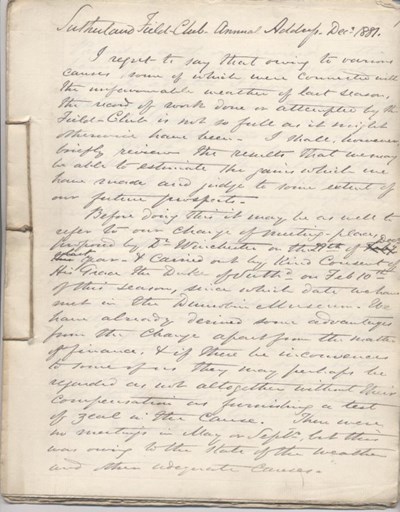 Sutherland Field-Club Annual Address. Decr. 1881.
I regret to say that owing to various
causes, some of which were connected with
the unfavourable weather of last season,
the record of work done or attempted by the
Field-Club is not so full as it might
otherwise have been. I shall, however
briefly review the results that we may
be able to estimate the gains which we
have made and judge to some extent of
our future prospects.
Before doing this it may be as well to
refer to our change of meeting-place,
proposed by Dr. Winchester on the of
last year & carried out by kind consent of
His Grace the Duke of Suthd. on Feb 10th
of this season, since which date we have
met in the Dunrobin Museum. We
have already derived some advantages
from the change apart from the matter
of finance, & if there be inconveniences
to some of us they may perhaps be
regarded as not altogether without their
compensation as furnishing a test
of zeal in the cause. There were
no meetings in May or Septr., but this
was owing to the state of the weather
and other adequate causes.